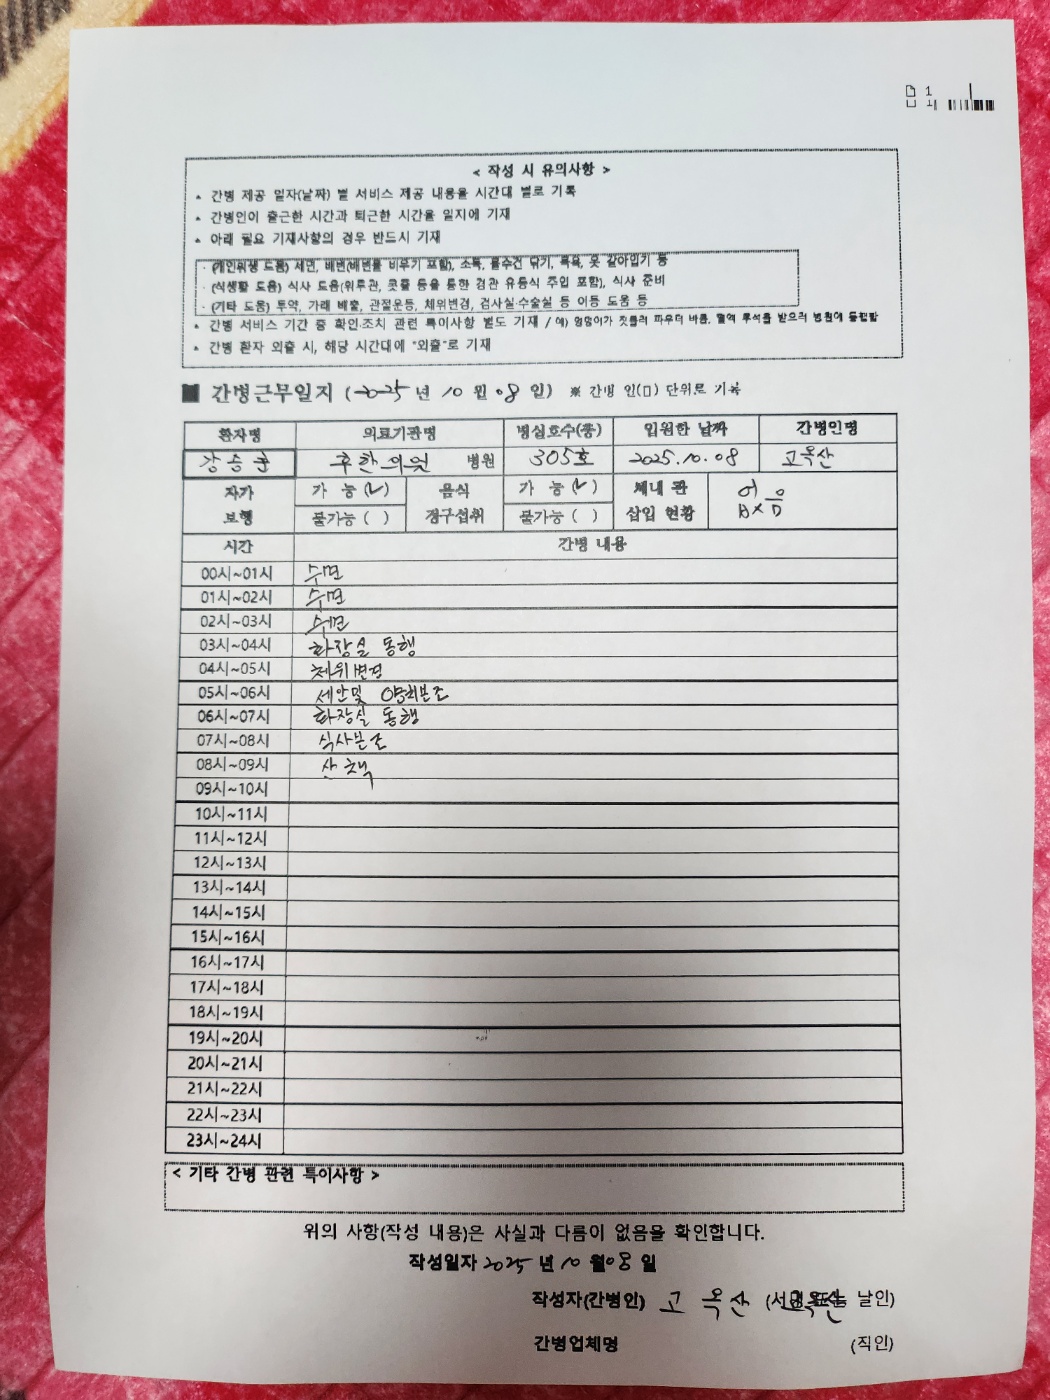 < 작성 시 유의사항 >
간병 제공 일자(날짜) 별 서비스 제공 내용을 시간대 별로 기록
간병인이 출근한 시간과 퇴근한 시간을 일지에 기재
아래 필요 기재사항의 경우 반드시 기재
· (개인위생 도움) 세면, 배변(배변물 비우기 포함), 소독, 물수건 닦기, 목욕, 옷 갈아입기 등
· (식생활 도움) 식사 도움(위루관, 콧줄 등을 통한 경관 유동식 주입 포함), 식사 준비
· (기타 도움) 투약, 가래 배출, 관절운동, 체위변경, 검사실·수술실 등 이동 도움 등
간병 서비스 기간 중 확인·조치 관련 특이사항 별도 기재 / 예) 엉덩이가 짓물러 파우더 바름, 혈액 투석을 받으러 병원에 동행함
간병 환자 외출 시, 해당 시간대에 "외출"로 기재
■ 간병근무일지 (2025년 10 월 08 일) ※ 간병 인(일) 단위로 기록
환자명 의료기관명 병실호수(동) 입원한 날짜 간병인명
강승훈 후한의원 병원 305호 2025.10.08 고옥산
자가 보행 가 능(✓) 불가능( )
음식 경구섭취 가 능(✓) 불가능( )
체내 관 삽입 현황 없음
시간 간병 내용
00시~01시 수면
01시~02시 수면
02시~03시 수면
03시~04시 화장실 동행
04시~05시 체위변경
05시~06시 세안및 양치보조
06시~07시 화장실 동행
07시~08시 식사보조
08시~09시 산책
09시~10시
10시~11시
11시~12시
12시~13시
13시~14시
14시~15시
15시~16시
16시~17시
17시~18시
18시~19시
19시~20시
20시~21시
21시~22시
22시~23시
23시~24시
< 기타 간병 관련 특이사항 >
위의 사항(작성 내용)은 사실과 다름이 없음을 확인합니다.
작성일자 2025 년 10 월 08 일
작성자(간병인) 고 옥산 (서명 또는 날인) 고옥산
간병업체명 (직인)